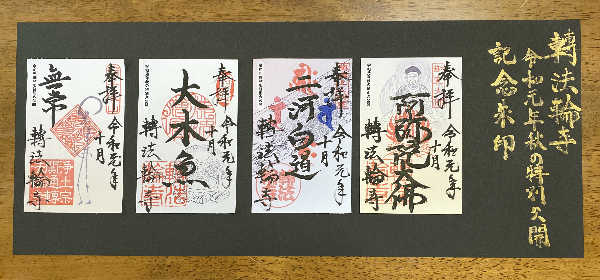 轉法輪寺
令和元年秋の特別公開
記念朱印
奉拝
阿弥陀大佛
令和元年
十月
轉法輪寺
奉拝
二河白道
令和元年
十月
轉法輪寺
奉拝
大木魚
令和元年
十月
轉法輪寺
奉拝
令和元年
十月
轉法輪寺